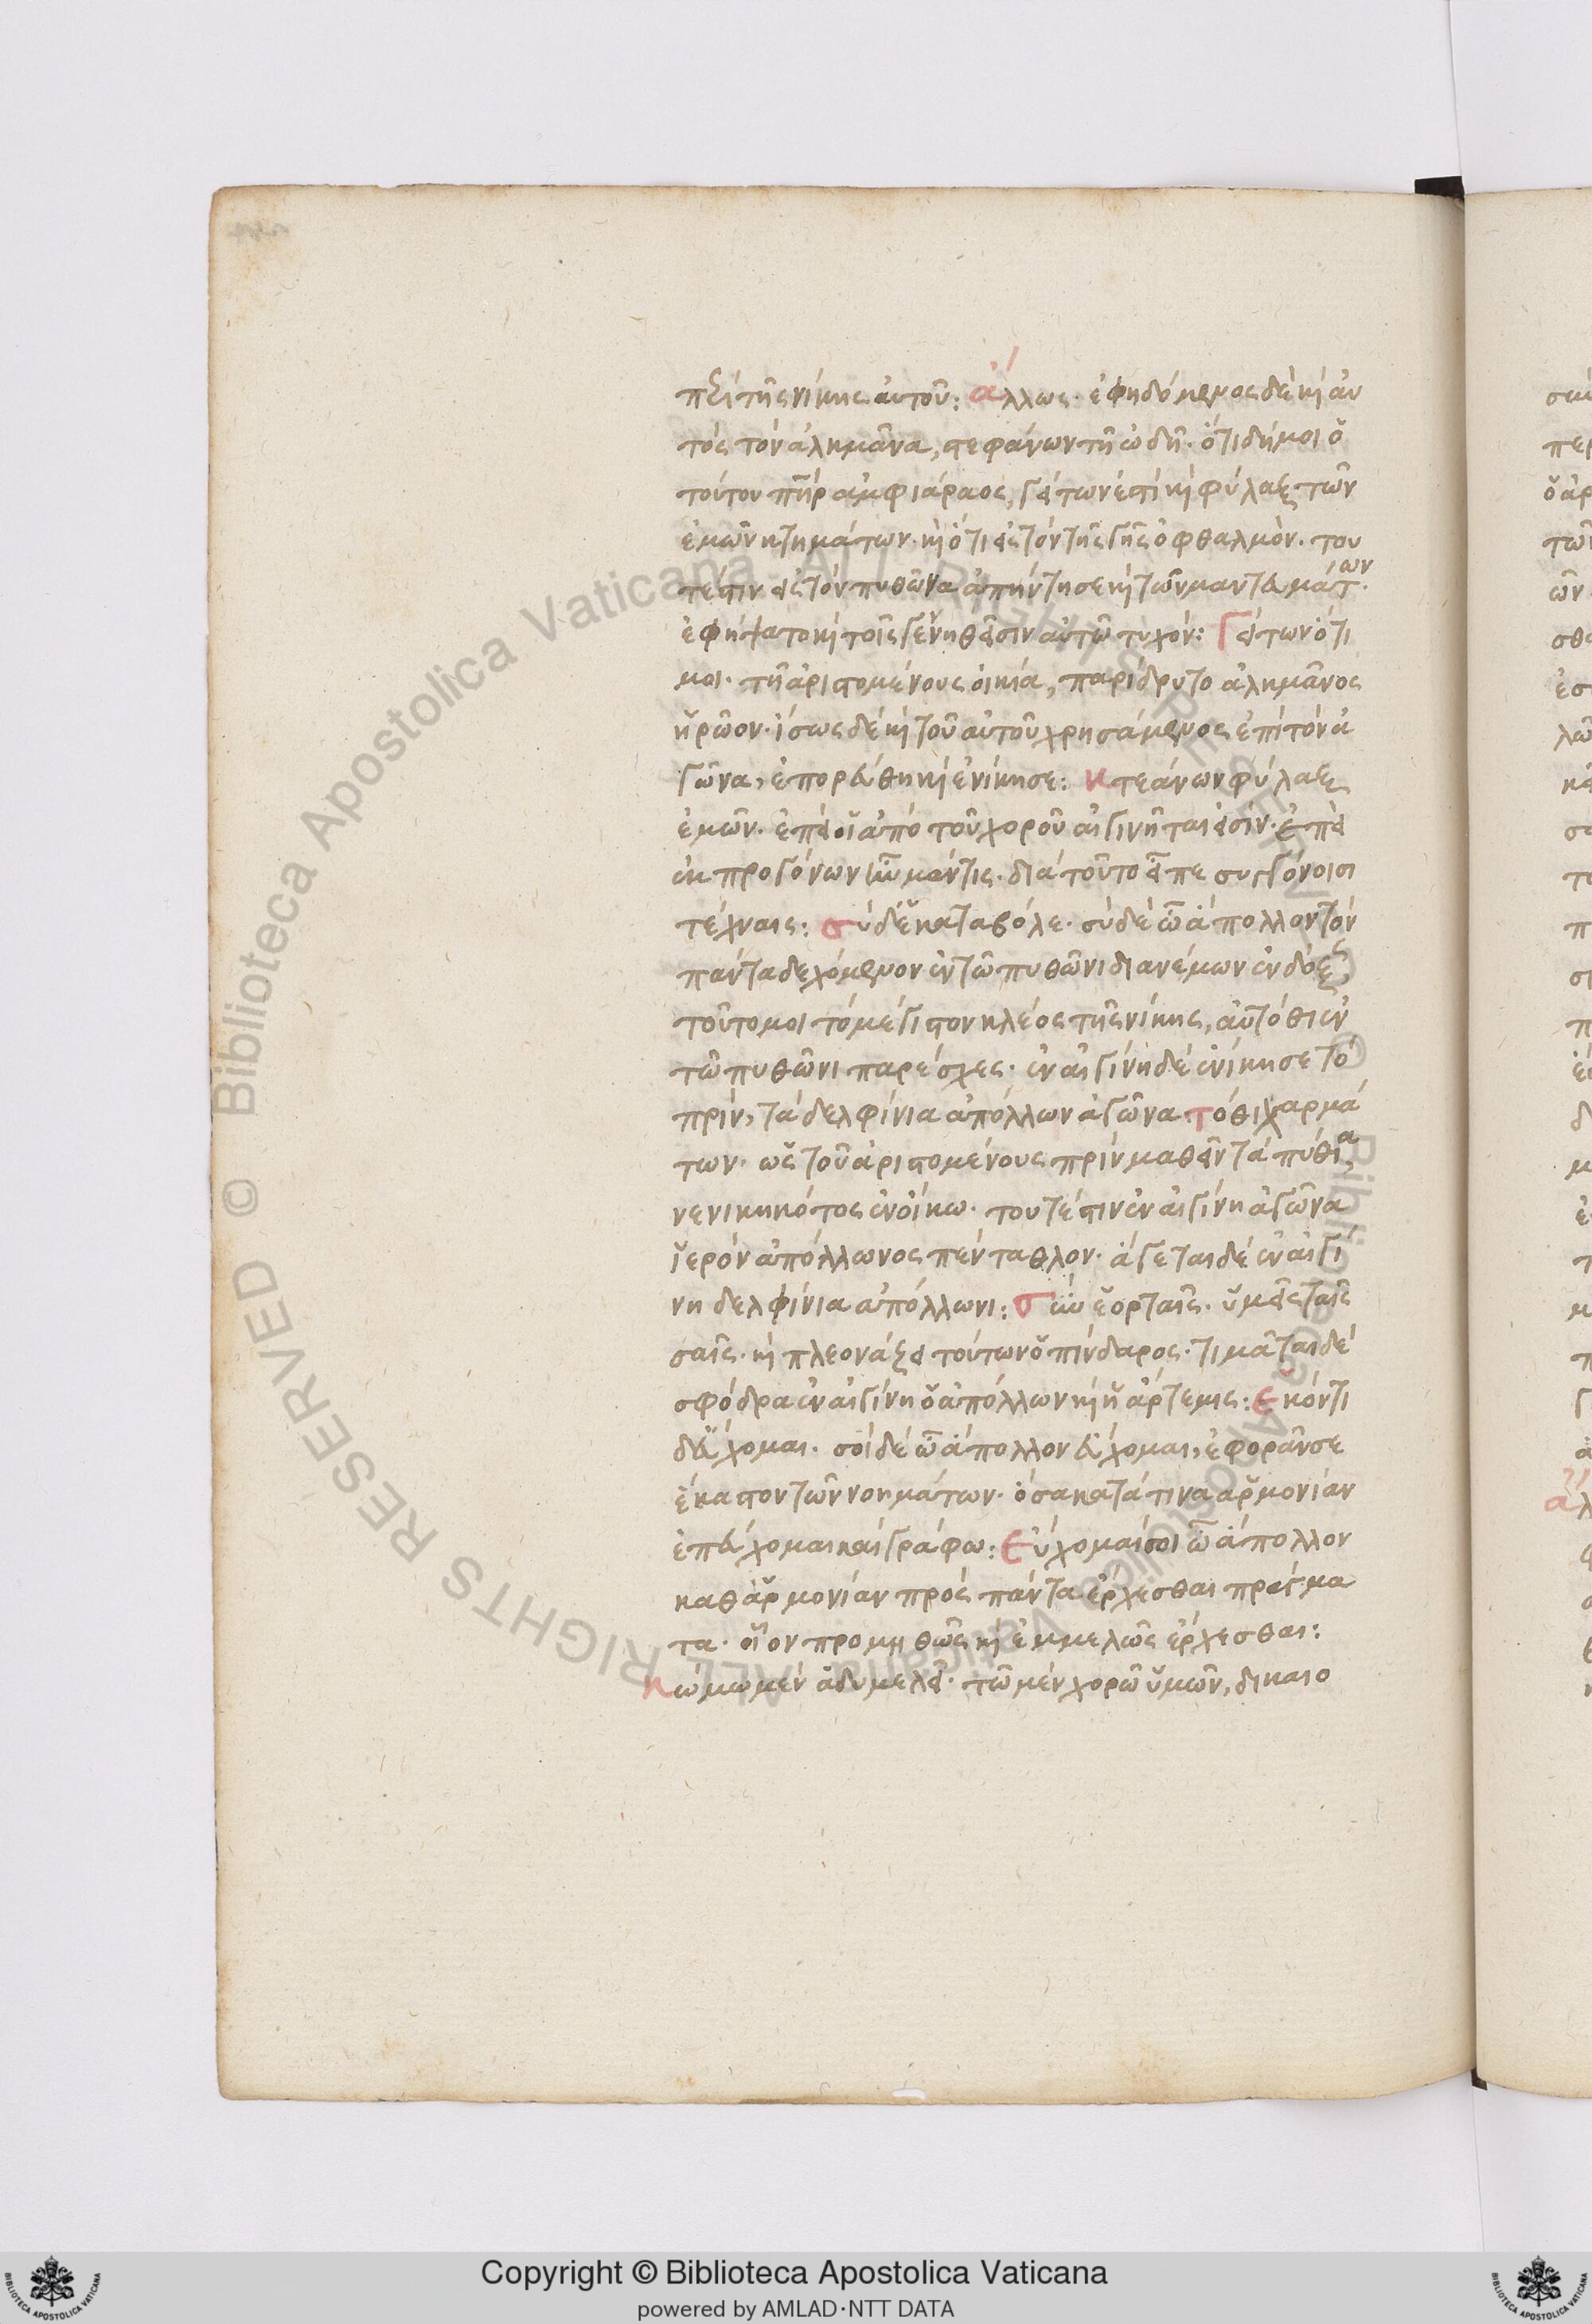 περὶ τῆς νίκης αὐτοῦ: ἄλλως· ἐφηδόμενος δὲ κὶ αὐ
τὸς τὸν ἀλκμᾶνα, στεφάνων τῇ ὠδῇ· ὅτι δή μοι ὁ
τούτου πῆρ ἀμφιάραος, γείτων ἐστὶ κὶ φύλαξ τῶν
ἐμῶν κτημάτων· κὶ ὅτι εἰς τὸν τῆς γῆς ὀφθαλμόν· του
τέστιν εἰς τὸν πυθῶνα ἀπήντησε κὶ τῶν μαντευμάτων·
ἐφήψατο κὶ τοῖς γεννηθεῖσιν αὐτῶ τυχόν: Γείτων ὅτι
μοι· τῇ ἀριστομένους οἰκία, παρίδρυτο ἀλκμᾶνος
ἡρῶον· ἴσως δὲ κὶ τοῦ αὐτοῦ χρησάμενος ἐπὶ τὸν ἀ
γῶνα, ἐπορεύθη κὶ ἐνίκησε: κτεάνων φύλαξ
ἐμῶν· ἐπεὶ οἱ ἀπὸ τοῦ χοροῦ αἰγινῆται εἰσίν· ἐπεὶ
ἐκ προγόνων ἦν μάντις· διὰ τοῦτο εἶπε συγγόνοισι
τέχναις: σὺ δ' ἑκαταβόλε· σὺ δὲ ὦ ἄπολλον τὸν
πάντα δεχόμενον ἐν τῶ πυθῶνι διανέμων ἐνδόξως,
τοῦτο μοι τὸ μέγιστον κλέος τῆς νίκης, αὐτόθι ἐν
τῶ πυθῶνι παρέσχες· ἐν αἰγίνη δὲ ἐνίκησε τὸ
πρίν, τὰ δελφίνια ἀπόλλων ἀγῶνα. τόθι χαρμά
των· ὡς τοῦ ἀριστομένους πρὶν μαθεῖν τὰ πύθια
νενικηκότος ἐν οἴκω· τουτέστιν ἐν αἰγίνη ἀγῶνα
ἱερὸν ἀπόλλωνος πένταθλον· ἄγεται δὲ ἐν αἰγί
νη δελφίνια ἀπόλλωνι: σὺν ἑορταῖς· ὑμεῖς ταῖς
σαῖς· κὶ πλεονάζει τούτων ὁ πίνδαρος· τιμᾶται δὲ
σφόδρα ἐν αἰγίνη ὁ ἀπόλλων κὶ ἡ ἄρτεμις: ἑκόντι
δ' εὔχομαι· σοὶ δὲ ὦ ἄπολλον εὔχομαι, ἐφορᾶν σε
ἕκαστον τῶν νοημάτων· ὅσα κατά τινα ἁρμονίαν
ἐπεύχομαι καὶ γράφω: Εὔχομαί σοι ὦ ἄπολλον
καθ' ἁρμονίαν πρὸς πάντα ἔρχεσθαι πράγμα
τα· οἷον προμηθῶς κὶ ἐμμελῶς ἔρχεσθαι:
κώμω μὲν ἁδυμελεῖ· τῶ μὲν χορῶ ὑμῶν, δικαιο
Copyright © Biblioteca Apostolica Vaticana
powered by AMLAD·NTT DATA